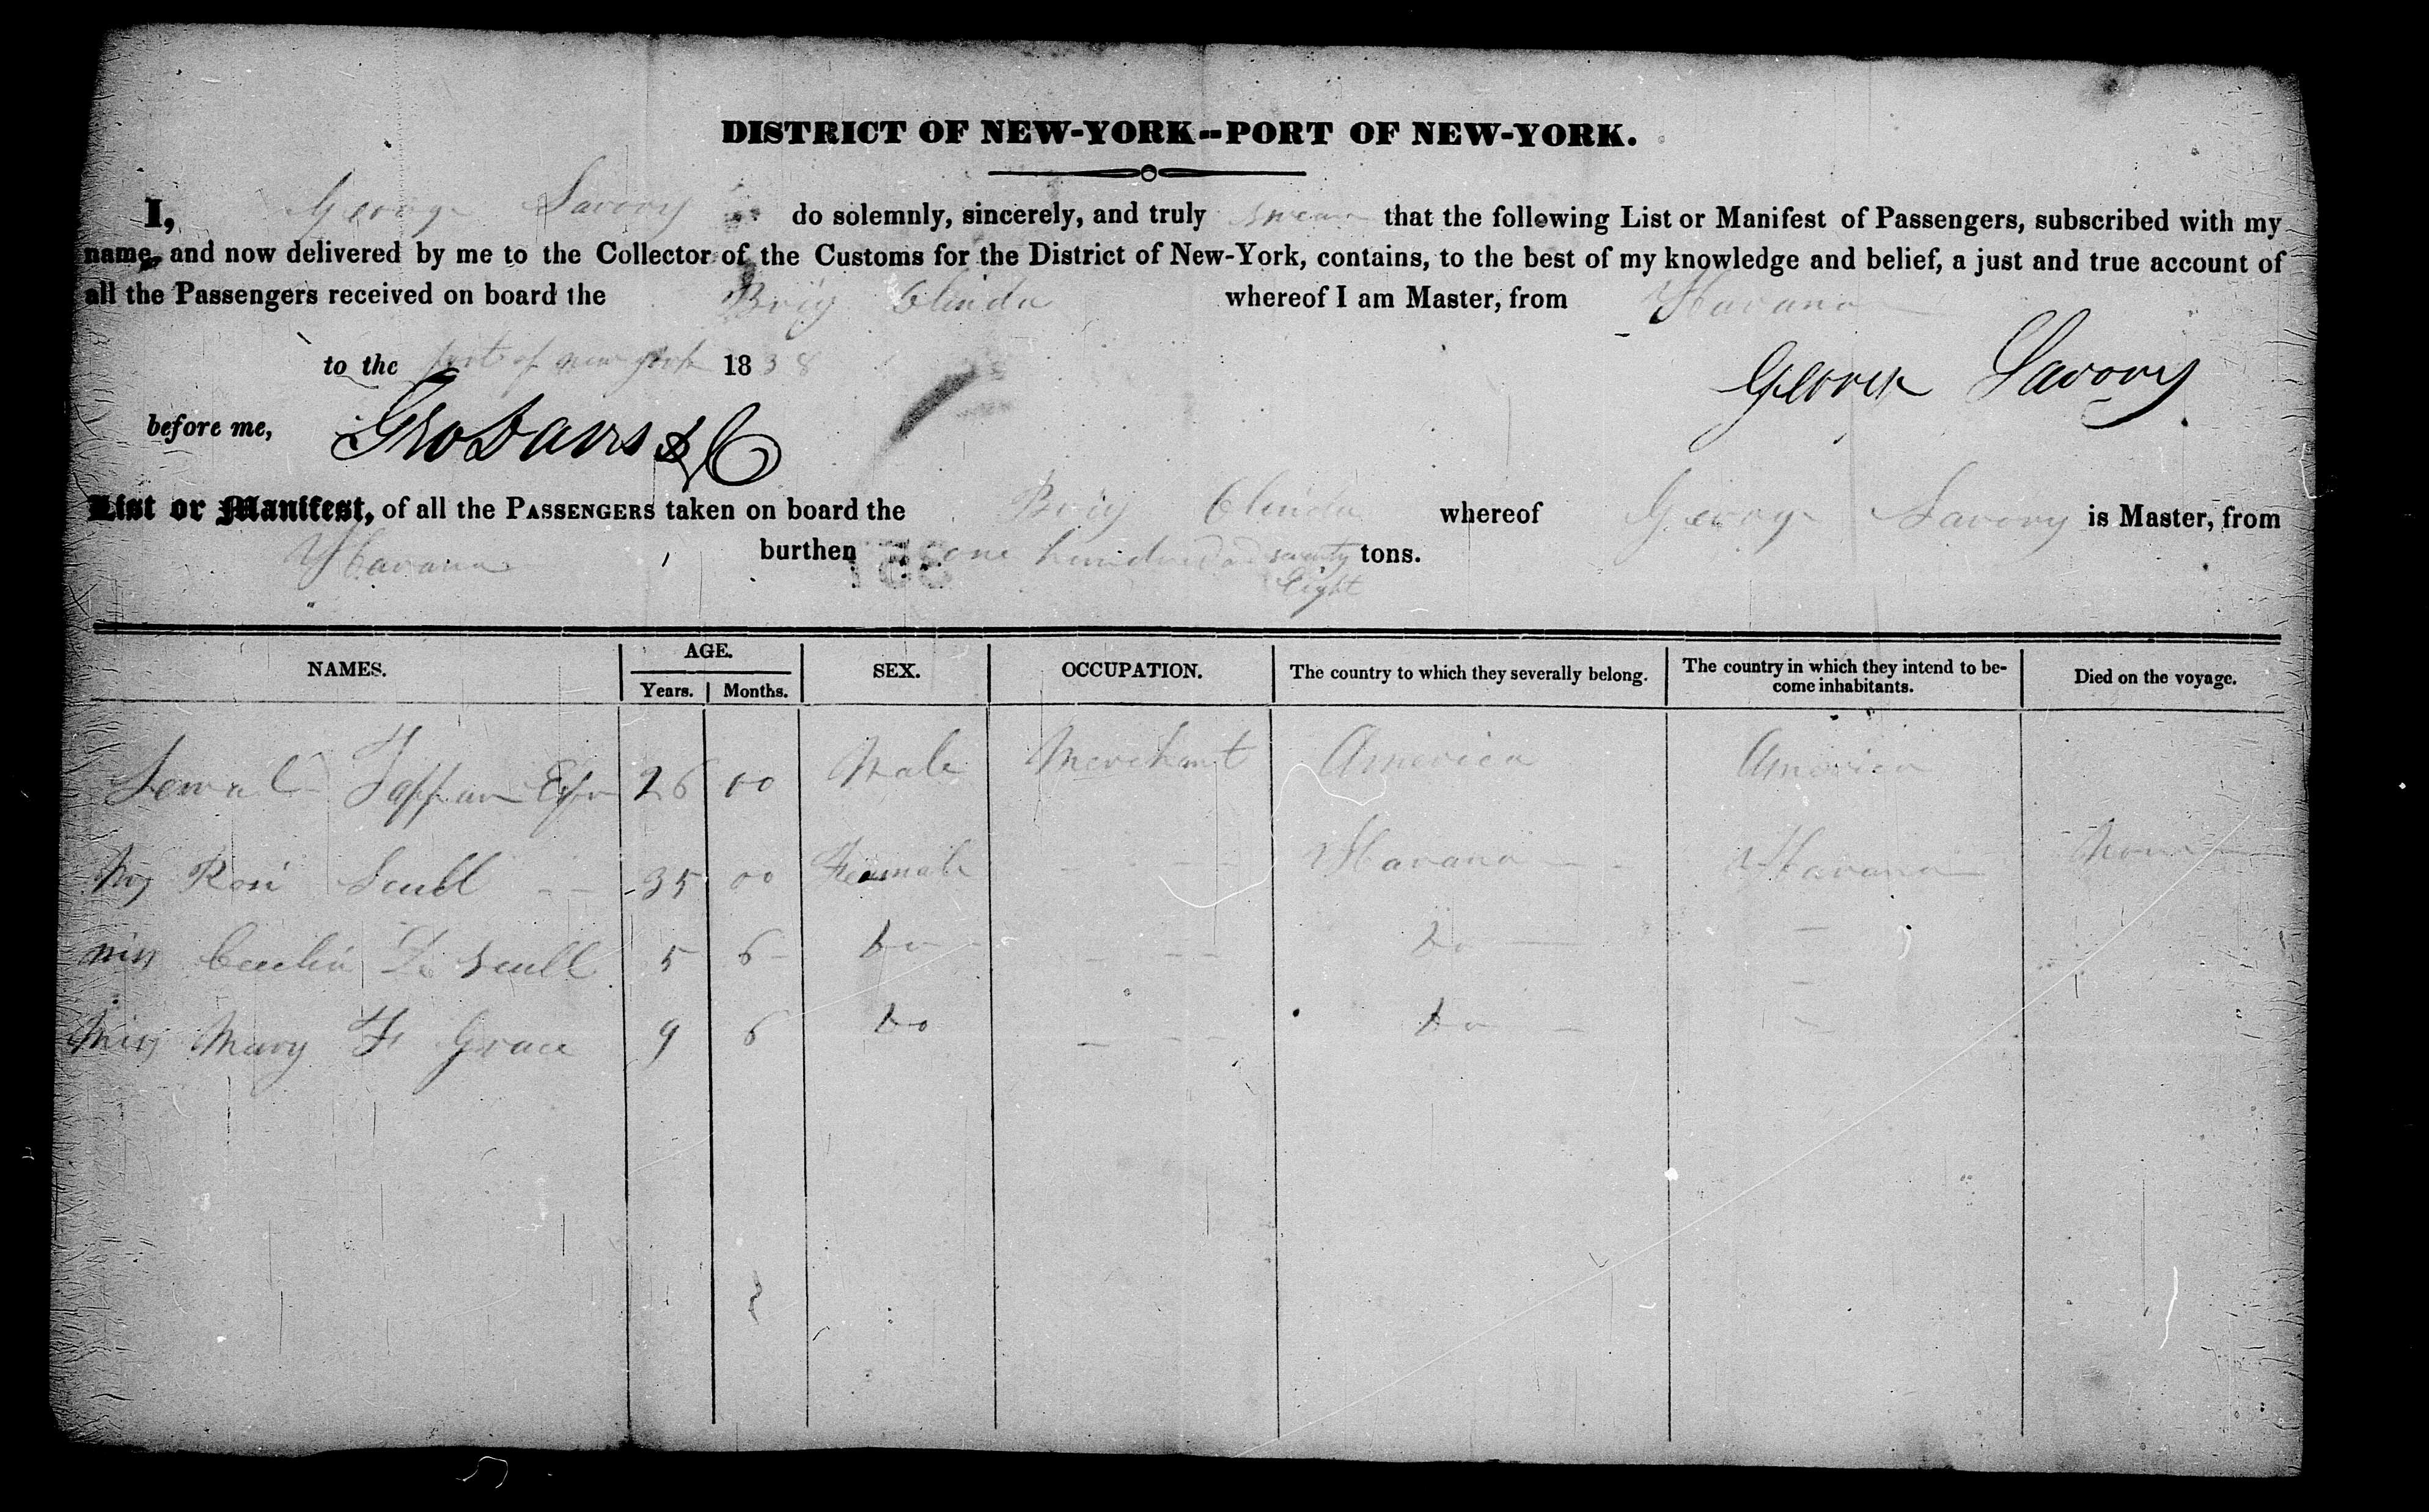 DISTRICT OF NEW-YORK--PORT OF NEW-YORK.
I, George Savory do solemnly, sincerely, and truly swear that the following List or Manifest of Passengers, subscribed with my
name, and now delivered by me to the Collector of the Customs for the District of New-York, contains, to the best of my knowledge and belief, a just and true account of
all the Passengers received on board the Brig Clinda whereof I am Master, from Havana
to the port of new york 1838
George Savory
before me, Geo Davis
List or Manifest, of all the PASSENGERS taken on board the Brig Clinda whereof George Savory is Master, from
Havana burthen one hundred and seventy tons.
Eight
NAMES. AGE. SEX. OCCUPATION. The country to which they severally belong. The country in which they intend to be- Died on the voyage.
Years. Months. come inhabitants.
Tappan 26 00 Male Merchant America America
Scull 35 00 Feamale - - - Havana Havana None
Miss Scull 5 6 Do - - - Do -
Miss Mary F Grace 9 6 Do - - - Do -